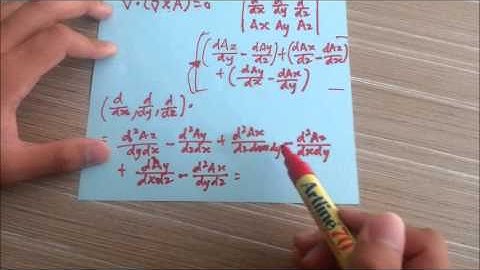 ∇·(∇×A)=0
| d/dx d/dy d/dz |
| Ax Ay Az |
[(dAz/dy - dAy/dz) + (dAx/dz - dAz/dx)
+ (dAy/dx - dAx/dy)]
(d/dx, d/dy, d/dz)·
= d²Az/dydx - d²Ay/dzdx + d²Ax/dzdy - d²Az/dxdy
+ d²Ay/dxdz - d²Ax/dydz =
Artline 70